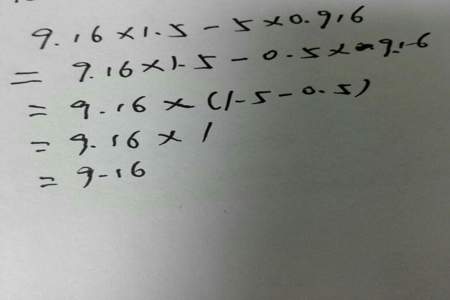 9.16×1.5-5×0.916
=9.16×1.5-0.5×9.16
=9.16×(1.5-0.5)
=9.16×1
=9.16